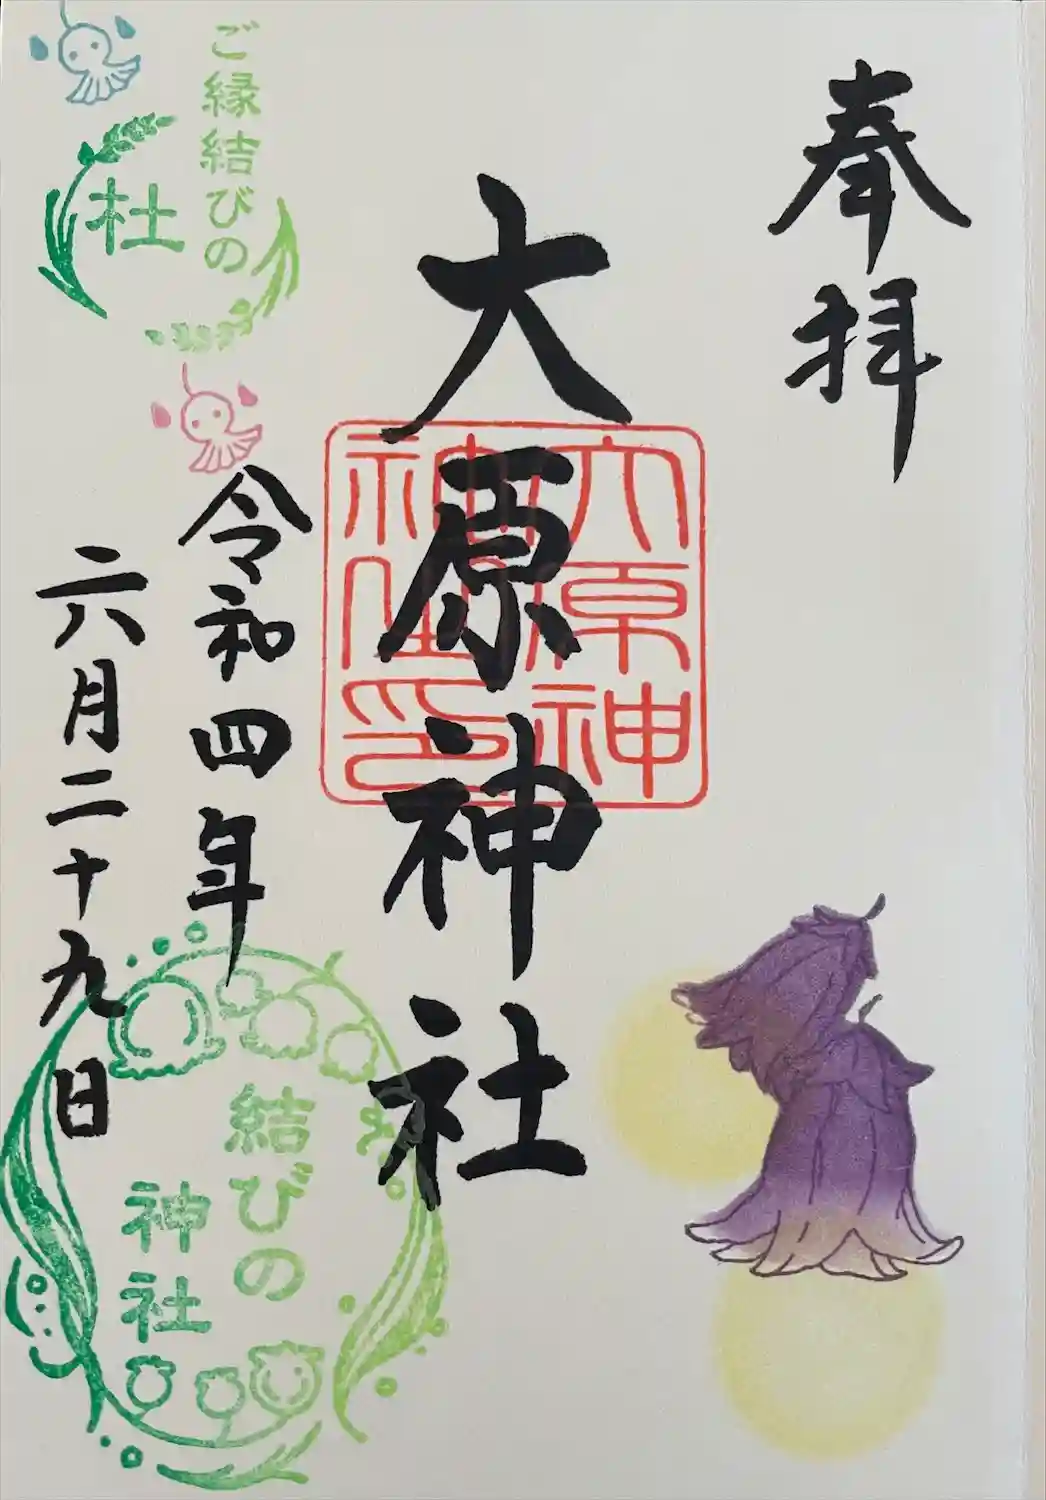 奉拝
大原神社
大原神
社之印
令和四年
六月二十九日
ご縁結びの
杜
結びの
神社